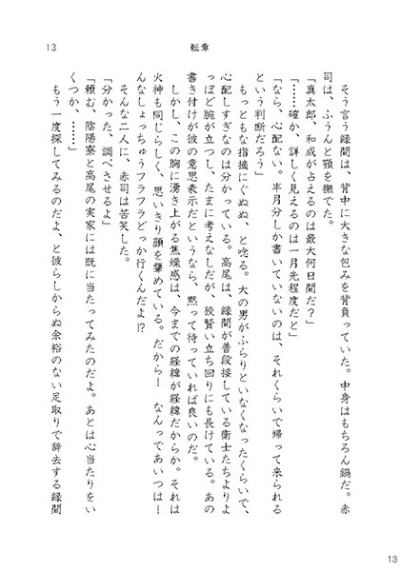 13
転章
そう言う緑間は、背中に大きな包みを背負っていた。中身はもちろん鍋だ。赤
司は、ふうんと顎を撫でた。
「真太郎、和成が占えるのは最大何日間だ？」
「……確か、詳しく見えるのは一月先程度だと」
「なら、心配ない。半月分しか書いていないのは、それくらいで帰って来られる
という判断だろう」
もっともな指摘にぐぬぬ、と唸る。大の男がふらりといなくなったくらいで、
心配しすぎなのは分かっている。高尾は、緑間が普段接している衛士たちよりよ
っぽど腕が立つし、たまに考えなしだが、狡賢い立ち回りにも長けている。あの
書き付けが彼の意思表示だというなら、黙って待っていれば良いのだ。
しかし、この胸に湧き上がる焦燥感は、今までの経緯が経緯だからか。それは
火神も同じらしく、思いきり顔を顰めている。だから！　なんっであいつは！
んなしょっちゅうフラフラどっか行くんだよ!?
そんな二人に、赤司は苦笑した。
「分かった、調べさせるよ」
「頼む、陰陽寮と高尾の実家には既に当たってみたのだよ。あとは心当たりをい
くつか、……」
もう一度探してみるのだよ、と彼らしからぬ余裕のない足取りで辞去する緑間
13